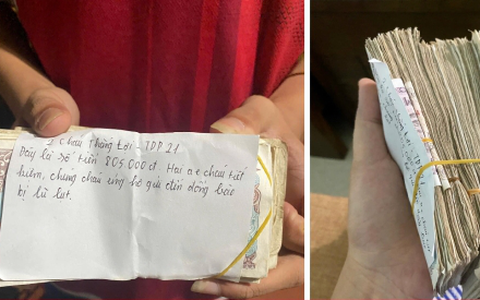 2 cháu Thắng Lợi - TDP 21
Đây là số tiền 805.000đ. Hai a e cháu tiết
kiệm, chúng cháu ủng hộ gửi đến đồng bào
bị lũ lụt.